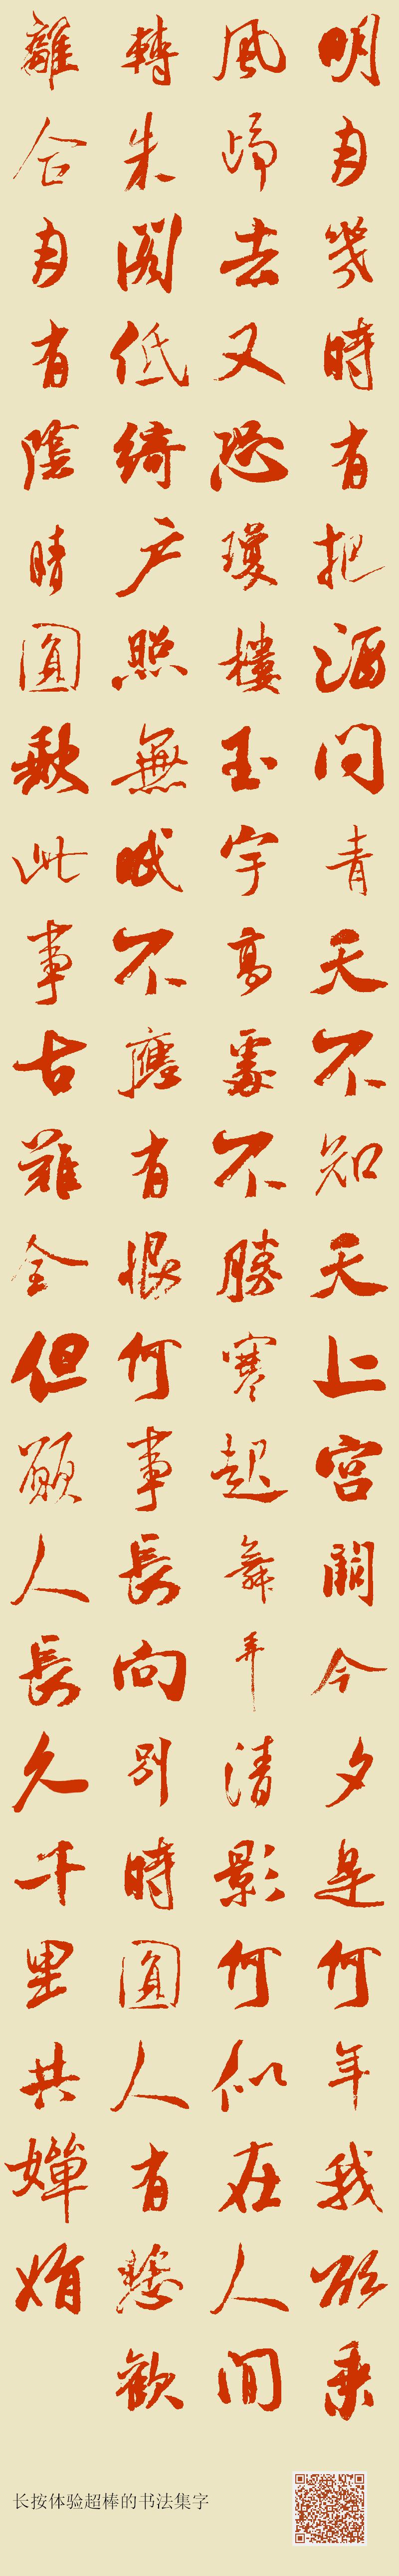 明月幾時有把酒問青天不知天上宮闕今夕是何年我欲乘
風歸去又恐瓊樓玉宇高處不勝寒起舞弄清影何似在人間
轉朱閣低綺户照無眠不應有恨何事長向別時圓人有悲歡
離合月有陰晴圓缺此事古難全但願人長久千里共嬋娟
长按体验超棒的书法集字